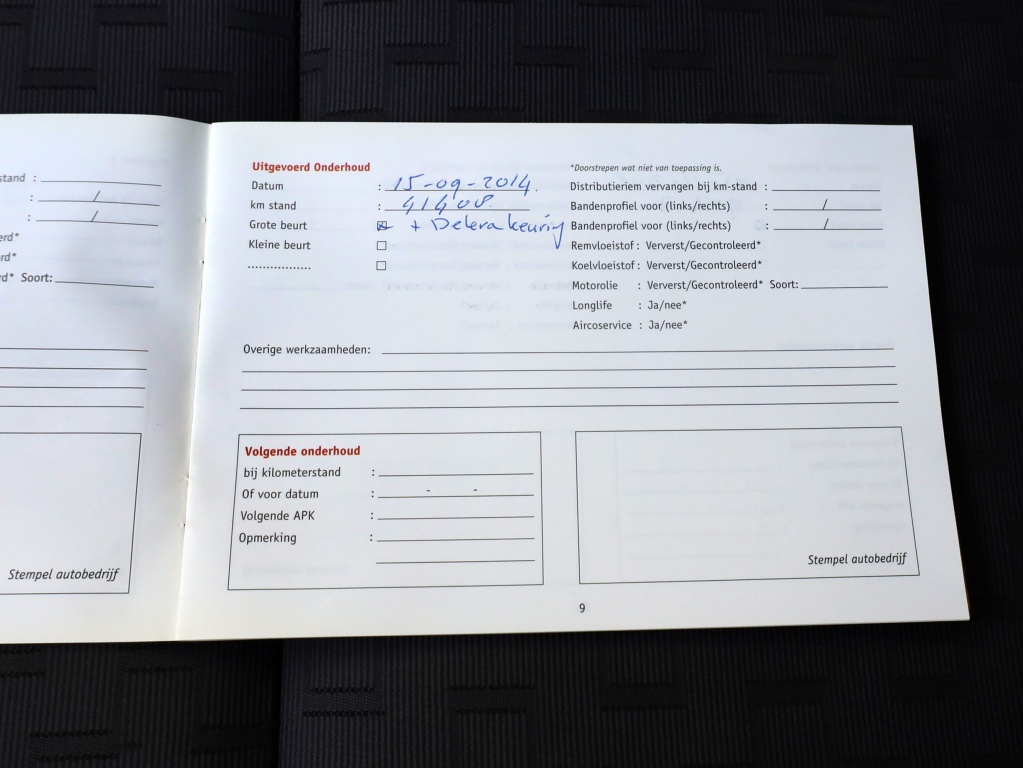 stand :
: /
: /
erd*
rd*
rd* Soort:
Stempel autobedrijf
Uitgevoerd Onderhoud
Datum : 15-09-2014.
km stand :
Grote beurt ☒ + Dekra keuring
Kleine beurt ☐
................. ☐
*Doorstrepen wat niet van toepassing is.
Distributieriem vervangen bij km-stand :
Bandenprofiel voor (links/rechts) : /
Bandenprofiel voor (links/rechts) : /
Remvloeistof : Ververst/Gecontroleerd*
Koelvloeistof : Ververst/Gecontroleerd*
Motorolie : Ververst/Gecontroleerd* Soort:
Longlife : Ja/nee*
Aircoservice : Ja/nee*
Overige werkzaamheden:
Volgende onderhoud
bij kilometerstand :
Of voor datum : - -
Volgende APK :
Opmerking :
Stempel autobedrijf
9